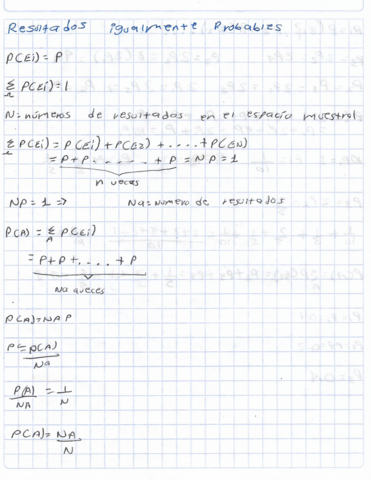 Resultados igualmente Probables
P(Ei) = P
Σ P(Ei)=1
N=números de resultados en el espacio muestral
Σ P(Ei) = P(Ei) + P(E2) + ....+ P(EN)
= P+P. . . . . . + P = NP = 1
n veces
NP = 1 => Na=número de resultados
P(A) = Σ P(Ei)
A
= P+P+. . . . + P
Na veces
P(A)=NA P
P = P(A)
Na
P(A) = 1
NA N
P(A) = NA
N